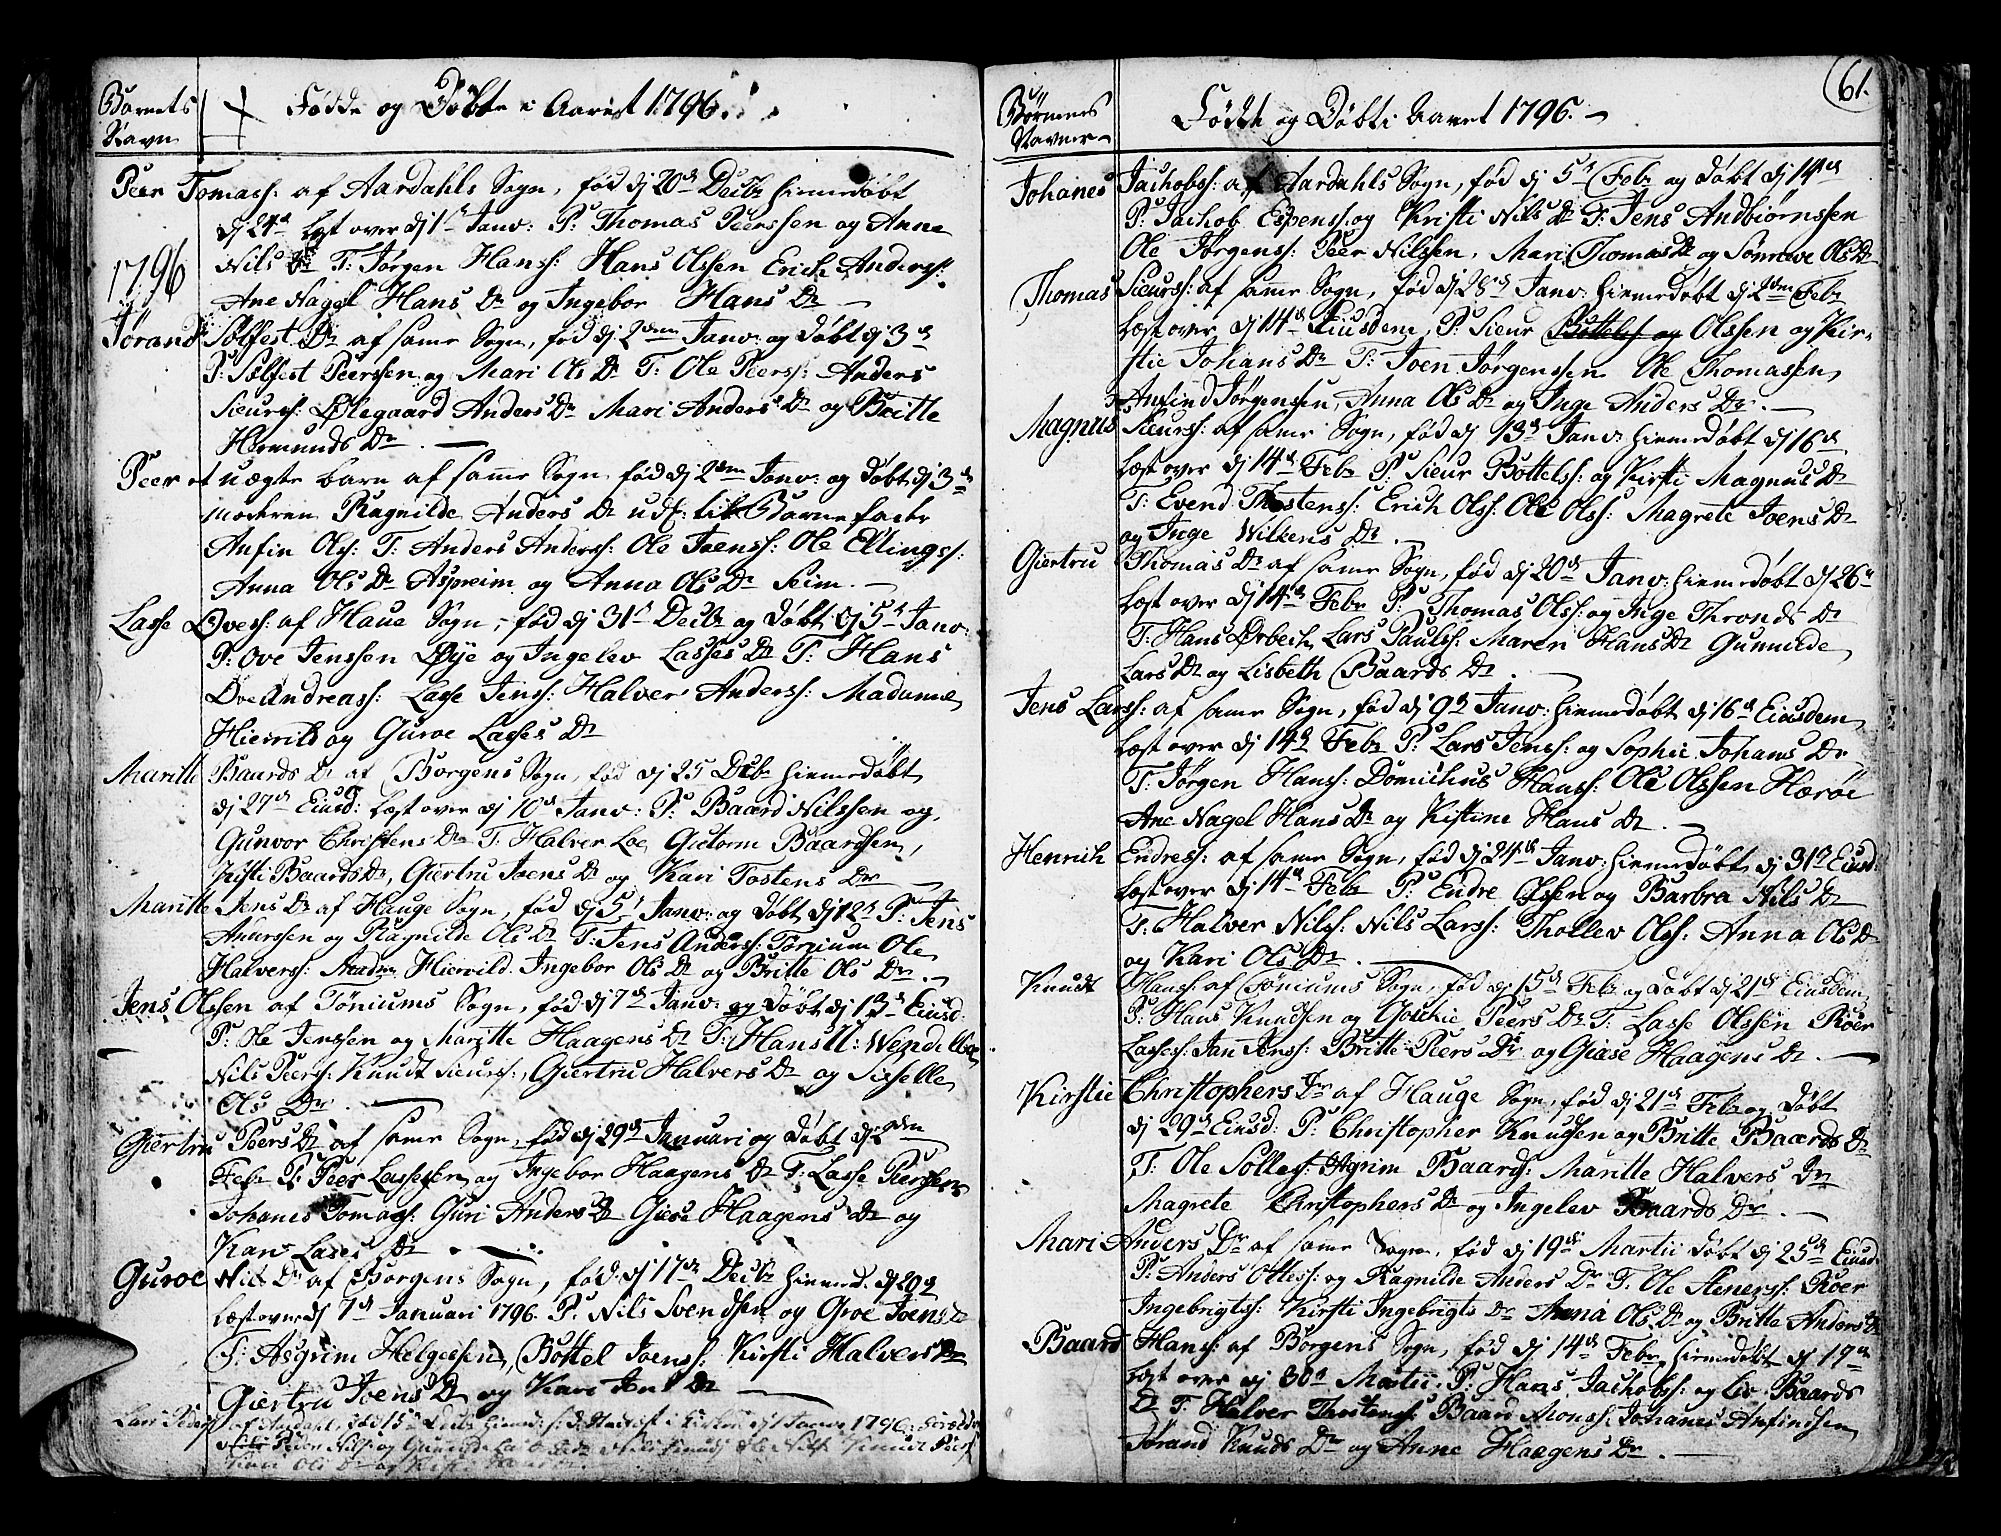 Barnets
Navn
Fødde og Døbte i Aaret 1796.
Peer Tomass: af Aardahls Sogn, fød dj 20de Decbr hiemedøbt
dj 24d læst over dj 1ste Janv: P: Thomas Peerssen og Anne
Nils Dr T: Jørgen Hanss: Hans Olssen Erich Anderss:
1796
Ane Nagel Hans Dr og Ingebor Hans Dr
Jørand Sølfest Dr af samme Sogn, fød dj 2den Janv: og døbt dj 3de
P: Sølfest Peerssen og Mari Ols Dr T: Ole Peerss: Anders
Sieurss: Ølegaard Anders Dr Mari Anders Dr og Britte
Hermunds Dr
Peer et uægte barn af samme Sogn fød dj 2den Janv: og døbt dj 3de
moderen Ragnilde Anders Dr udl: til Barnefader
Anfin Olss: T: Anders Anderss: Ole Joenss: Ole Ellingss:
Anna Ols Dr Aspreim og Anna Ols Dr Seim.
Lasse Ovess: af Haue Sogn, fød dj 31te Decbr og døbt dj 5te Janv:
P: Ove Jenssen Øye og Ingelev Lasses Dr T: Hans
Ove Andreass: Lasse Jenss: Halver Anderss: Madamme
Hiervild og Guroe Lasses Dr
Maritte Baards Dr af Borgens Sogn, fød dj 25 Decbr hiemedøbt
dj 27de Eiusd: læst over dj 10de Janv: P: Baard Nilssen og
Gunvor Christens Dr T: Halver Loe Guttorm Baardsen,
Kisti Baards Dr, Giertru Joens Dr og Kari Tostens Dr
Maritte Jens Dr af Hauge Sogn, fød dj 5te Janv: og døbt dj 12te P: Jens
Anderssen og Ragnilde Ols Dr T: Jens Anderss: Tønium Ole
Halverss: Madm Hiervild. Ingebor Ols Dr og Britte Ols Dr.
Jens Olssen af Tøniums Sogn, fød dj 7de Janv: og døbt dj 13de Eiusd:
P: Ole Jenssen og Maritte Haagens Dr T: Hans
Nils Peerss: Knudt Sieurss: Giertru Halvers Dr og Sisselle
Ols Dr
Giertru Peers Dr af samme Sogn, fød dj 29de Januari og døbt dj 2den
Febr P: Peer Lassesen og Ingebor Haagens Dr T: Lasse Pierssen
Johanes Tomass: Guri Anders Dr Giase Haagens Dr og
Kari Lasses Dr
Guroe Nils Dr af Borgens Sogn, fød dj 17de Decbr hiemd. dj 20de
læst over dj 7de Januari 1796. P: Nils Svendsen og Groe Joens Dr
T: Asgrim Helgessen, Bottel Joenss: Kirsti Halvers Dr
Giertru Joens Dr og Kari Jens Dr
Lars Peders: af Aardahl, fød 15 Decbr 1796
Peder Nils: og Gunnilde Lars Dr
Kari Ols Dr og
61.
Børnenes
Navne
Fødde og Døbte Aaret 1796.
Johanes Jachobss: af Aardahls Sogn, fød dj 5te Febr og døbt dj 14de
P: Jachob Espenss: og Kristi Nils Dr T: Jens Andbiørnssen
Ole Jørgenss: Peer Nilssen, Mari Thomas Dr og Sønneve Ols Dr
Thomas Sieurss: af samme Sogn, fød dj 28de Janv: hiemedøbt dj 2den Febr
læst over dj 14de Eiusdem, P: Sieur Olssen og Kir-
stie Johans Dr T: Joen Jørgenssen Ole Thomassen,
Anfind Jørgensen, Anna Ols Dr og Inge Anders Dr.
Magnus Sieurss: af samme Sogn, fød dj 13de Janv: hiemedøbt dj 16de
læst over dj 14de Febr P: Sieur Bottelss: og Kirsti Magnus Dr
T: Evend Thostenss: Erich Olss: Ole Olss: Magrete Joens Dr
og Inge Wilkens Dr.
Giertru Thomas Dr af samme Sogn, fød dj 20de Janv: hiemedøbt dj 26de
læst over dj 14de Febr P: Thomas Olss: og Inge Thronds Dr
T: Hans Ørbech, Lars Paulss: Maren Hans Dr Gunnilde
Lars Dr og Lisbeth Baards Dr.
Jens Larss: af samme Sogn, fød dj 9de Janv: hiemedøbt dj 16de Eiusdem,
læst over dj 14de Febr P: Lars Jenss: og Sophie Johans Dr
T: Jørgen Hanss: Domichus Hanss: Ole Olssen Hærøe
Ane Nagel Hans Dr og Kistine Hans Dr.
Henrich Endress: af samme Sogn, fød dj 24de Janv: hiemedøbt, dj 31te Eiusd:
læst over dj 14de Febr P: Endre Olssen og Barbra Nils Dr
T: Halver Nilss: Nils Larss: Thollev Olss: Anna Ols Dr
og Kari Ols Dr.
Knudt Hanss: af Tøniums Sogn, fød dj 15de Febr og døbt dj 21de Eiusdem
P: Hans Knudsen og Gotchie Peers Dr T: Lasse Olssen Roer
Lassess: Jan Jenss: Britte Peers Dr og Giase Haagens Dr.
Kirstie Christophers Dr af Hauge Sogn, fød dj 21de Febr og døbt
dj 29de Eiusd: P: Christopher Knudsen og Britte Baards Dr
T: Ole Sollest: Agrim Baards: Maritte Halvers Dr
Magrete Christophers Dr og Ingelev Baards Dr.
Mari Anders Dr af samme Sogn, fød dj 19de Martii døbt dj 25de Eiusd:
P: Anders Ottess: og Ragnilde Anders Dr T: Ole Stenerss: Roer
Ingebrigtss: Kirsti Ingebrigts Dr Anna Ols Dr og Britta Anders Dr
Baard Hanss: af Borgens Sogn, fød dj 14de Febr hiemedøbt dj 19de
læst over dj 30te Martii, P: Hans Jachobss: og Liv Baards
Dr T: Halver Thostenss: Baard Monss: Johanes Anfindsen
Jørand Knuds Dr og Anne Haagens Dr.